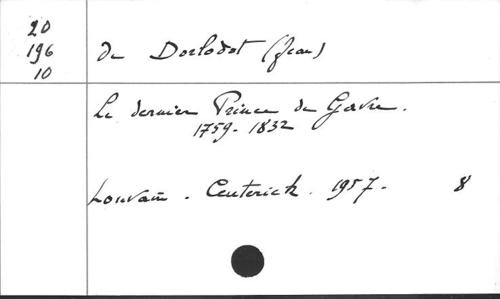 20
196
10
de Dorlodot (Jean)
Le dernier Prince de Gavre.
1759-1832
Louvain. Ceuterick. 1957- 8